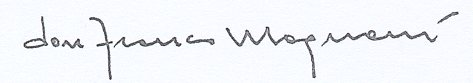 don Franco Magnani